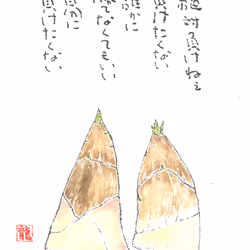 対負けねぇ
負けたくない
かに
てなくてもいい
かに
負けたくない
龍